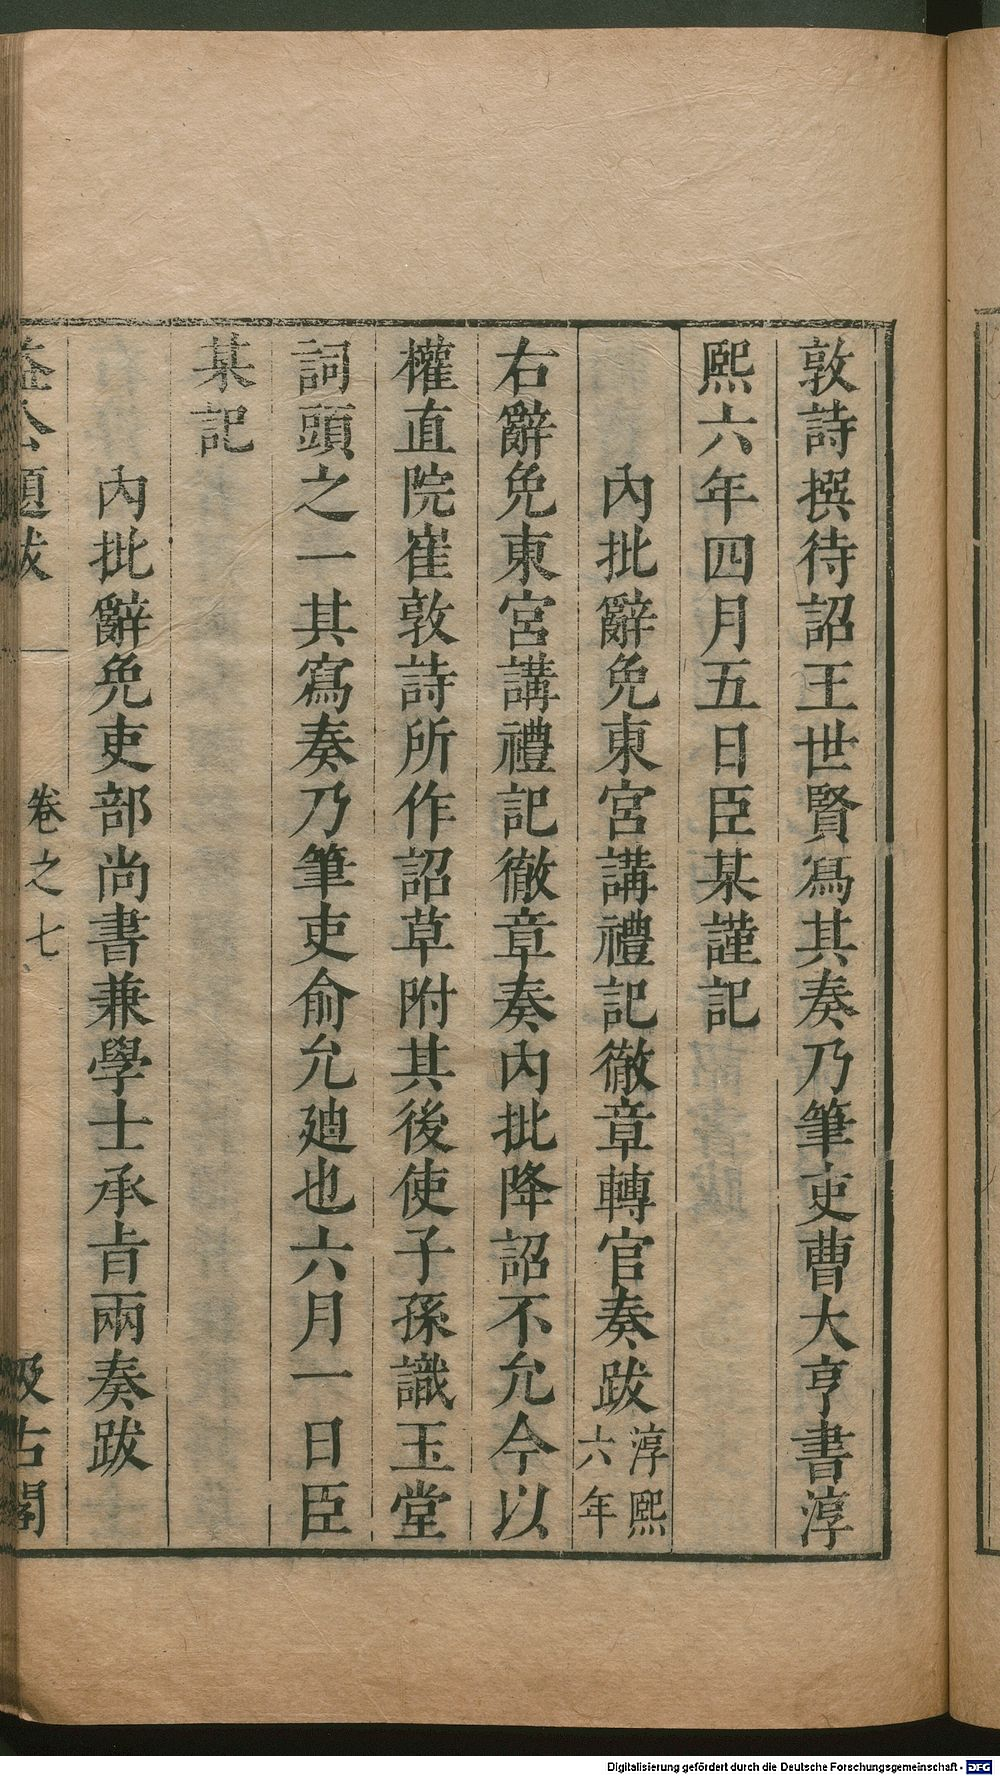 敦詩撰待詔王世賢寫其奏乃筆吏曹大亨書淳
熙六年四月五日臣某謹記
內批辭免東宮講禮記徹章轉官奏跋淳熙六年
右辭免東宮講禮記徹章奏內批降詔不允今以
權直院崔敦詩所作詔草附其後使子孫識玉堂
詞頭之一其寫奏乃筆吏俞允廸也六月一日臣
某記
內批辭免吏部尚書兼學士承旨兩奏跋
益公題跋 卷之七 汲古閣
Digitalisierung gefördert durch die Deutsche Forschungsgemeinschaft - DFG